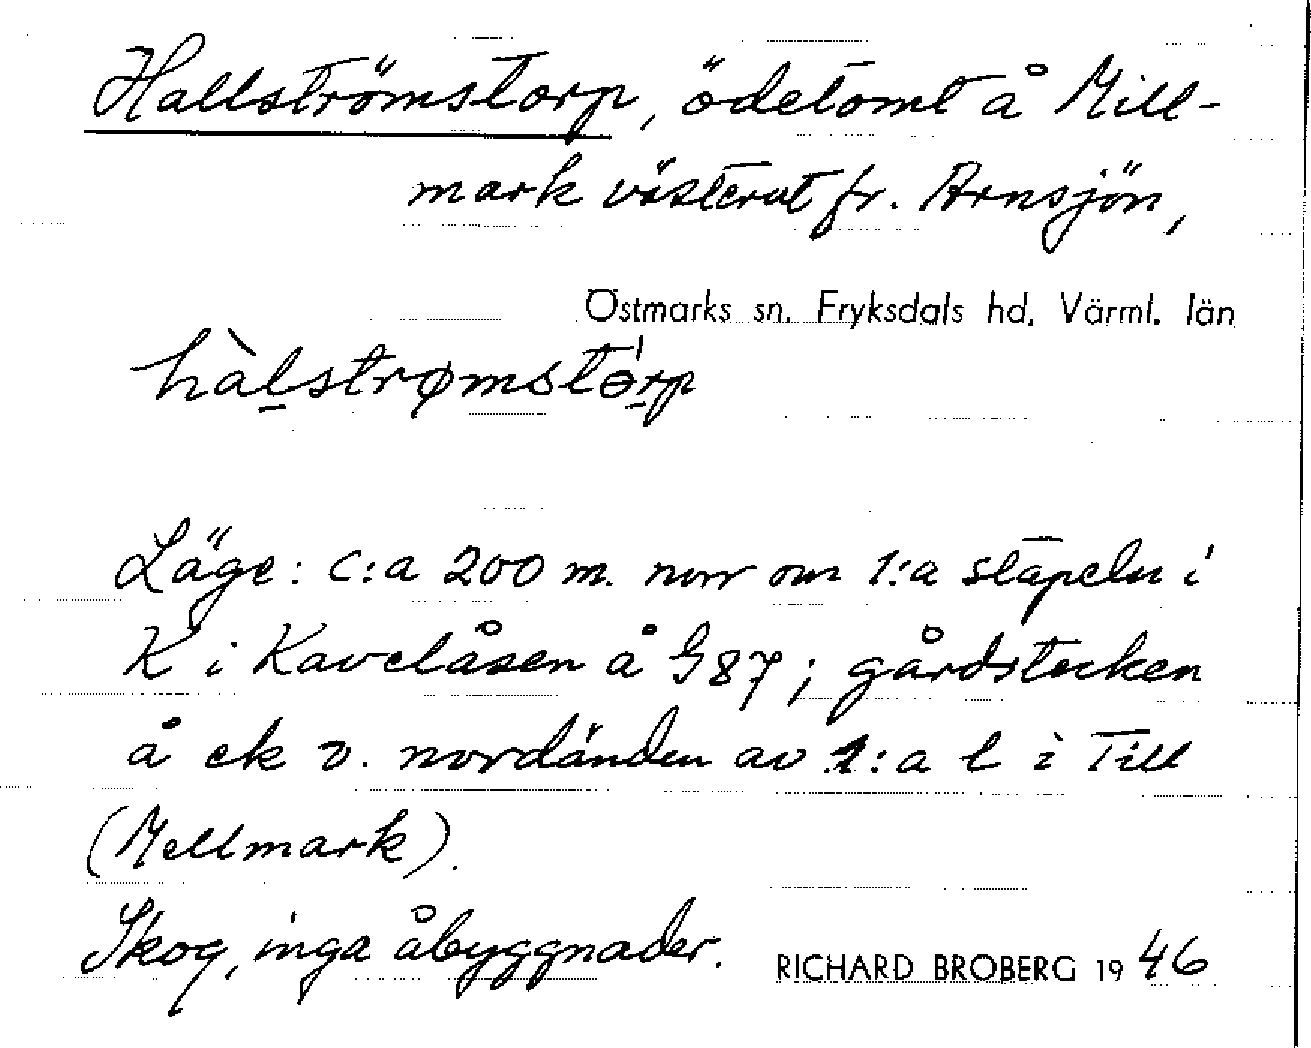 Hallströmstorp, ödetomt å Mill-
mark västerut fr. Arnsjön,
Östmarks sn. Fryksdals hd. Värml. län
hàlstrømstórp
Läge: c:a 200 m. norr om 1:a stapeln i
K i Kavelåsen å G87; gårdstecken
å ek v. nordänden av 1:a l i Till
(Mellmark).
Skog, inga åbyggnader.
RICHARD BROBERG 1946